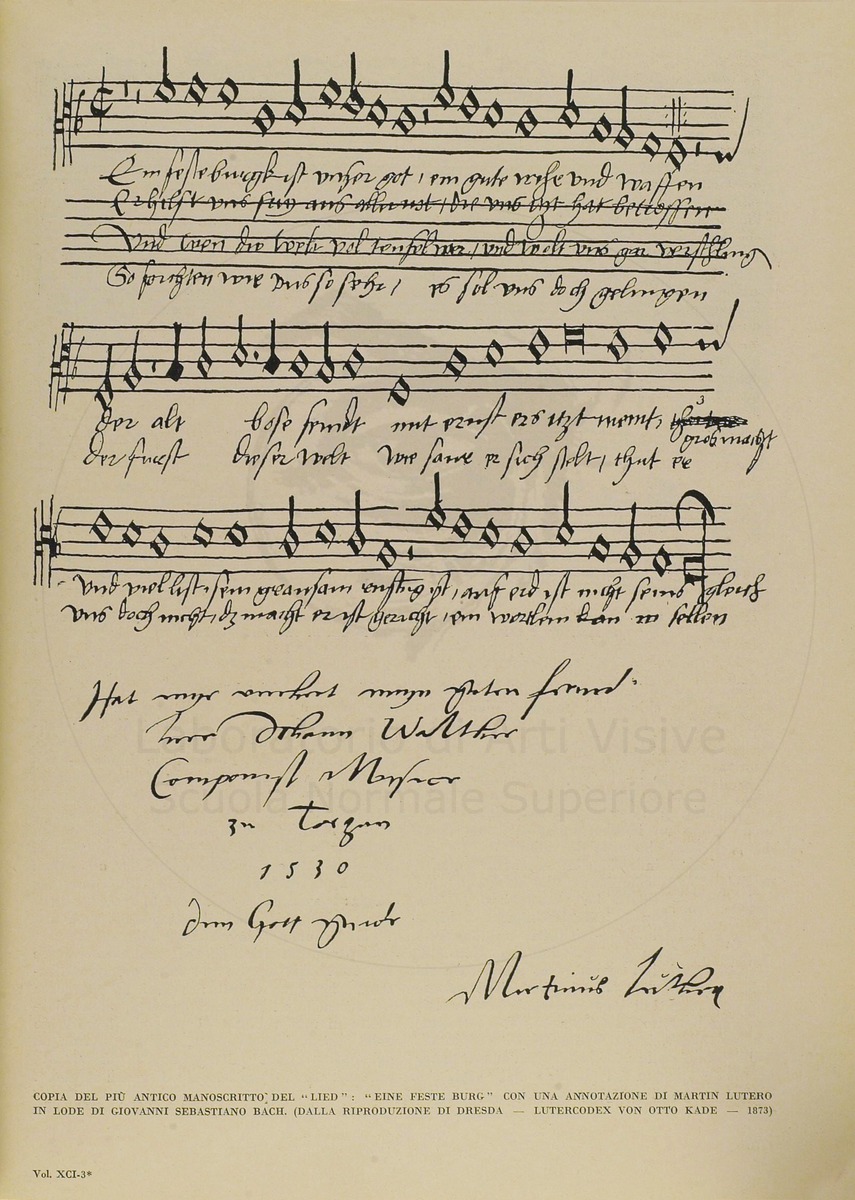 Ein feste burgk ist unser got, ein gute wehr und waffen
Er hilfft uns frey aus aller not, die uns itzt hat betroffen
Und wen die welt vol teufel wer, und wolt uns gar verschling
So forchten wir uns so sehr, es sol uns doch gelingen
der alt bose feindt mit ernst ers itzt meint,
gros macht
der furst dieser welt wie saur er sich stelt, thut er
und viel list, sein grausam rustug ist, auf erd ist nicht seins gleich
uns doch nicht, dz macht er ist gericht, ein wortlein kan in fellen
Hat myr verehret meyn guter freund
herr Johann Walther
Componist Musice
zu Torgau
1530
dem Gott gnade
Martinus Luther
Laboratorio di Arti Visive
Scuola Normale Superiore
COPIA DEL PIÙ ANTICO MANOSCRITTO DEL “LIED”: “EINE FESTE BURG” CON UNA ANNOTAZIONE DI MARTIN LUTERO
IN LODE DI GIOVANNI SEBASTIANO BACH. (DALLA RIPRODUZIONE DI DRESDA — LUTERCODEX VON OTTO KADE — 1873)
Vol. XCI-3*